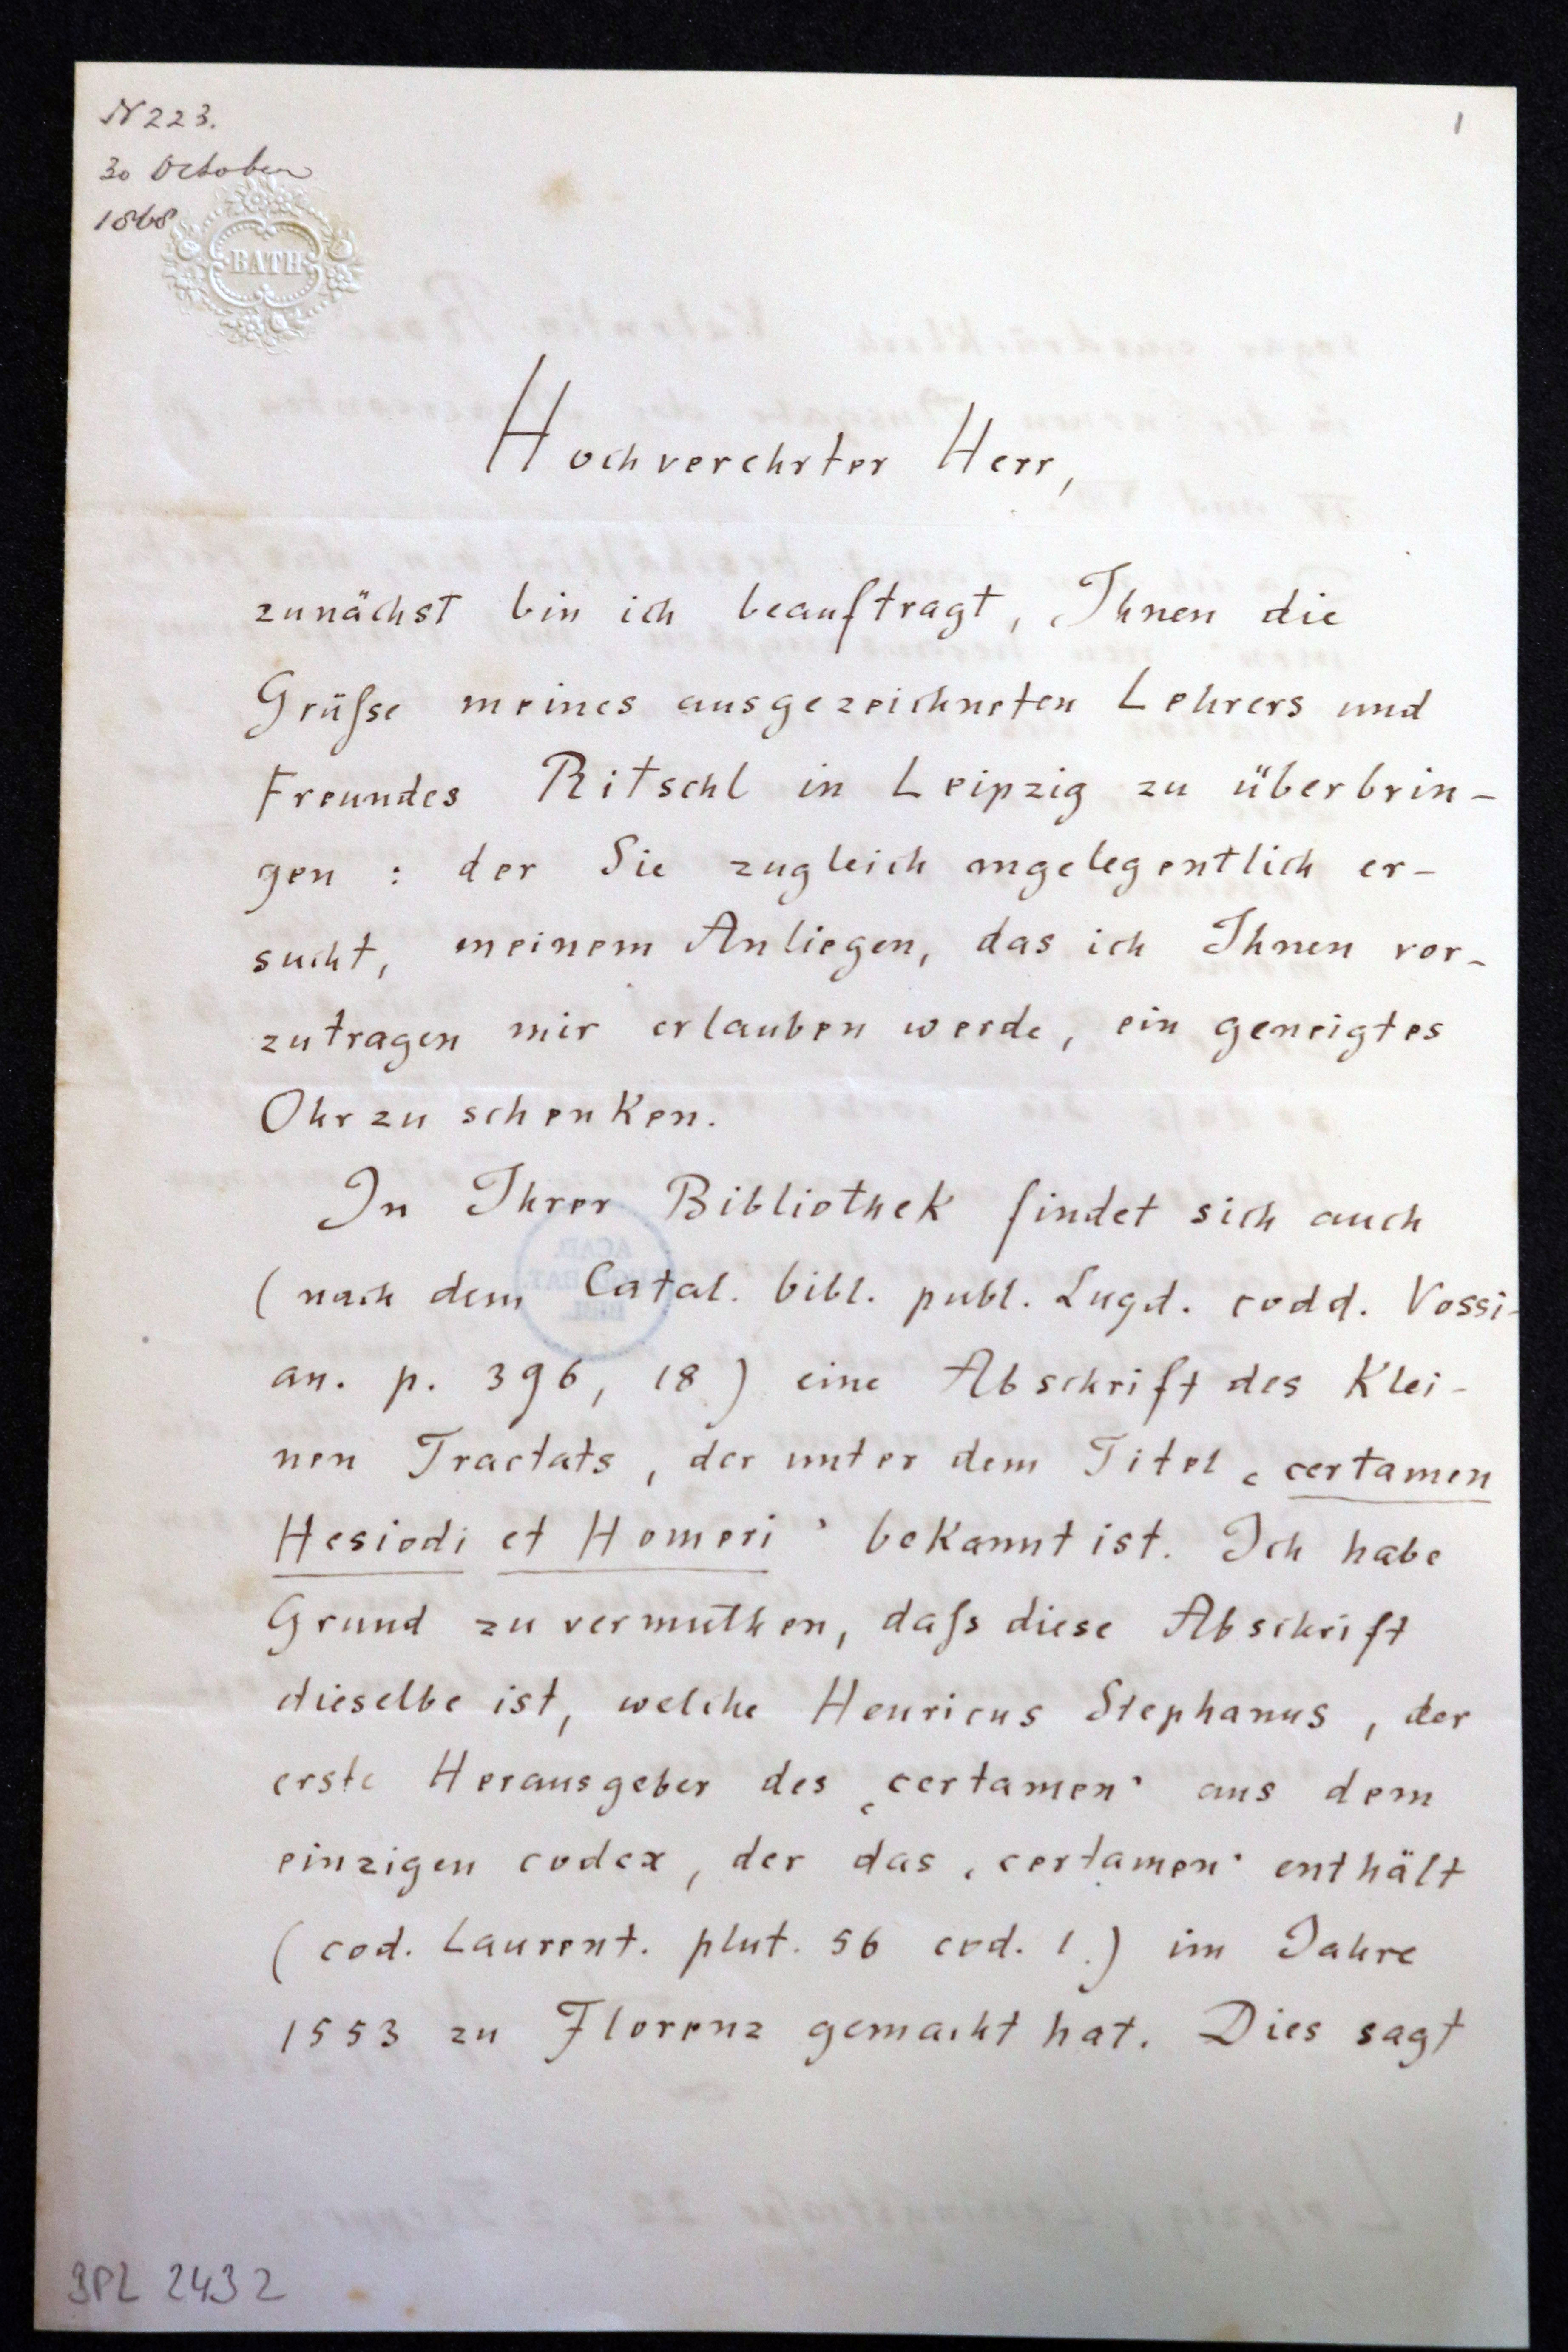 N 223.
30 October
1868
1
BATH
Hochverehrter Herr,
zunächst bin ich beauftragt, Ihnen die
Grüſse meines ausgezeichneten Lehrers und
Freundes Ritschl in Leipzig zu überbrin-
gen : der Sie zugleich angelegentlich er-
sucht, meinem Anliegen, das ich Ihnen vor-
zutragen mir erlauben werde, ein geneigtes
Ohr zu schenken.
In Ihrer Bibliothek findet sich auch
(nach dem Catal. bibl. publ. Lugd. codd. Vossi-
an. p. 396, 18) eine Abschrift des Klei-
nen Tractats, der unter dem Titel ‚certamen
Hesiodi et Homeri' bekannt ist. Ich habe
Grund zu vermuthen, daſs diese Abschrift
dieselbe ist, welche Henricus Stephanus, der
erste Herausgeber des ‚certamen' aus dem
einzigen codex, der das ‚certamen' enthält
(cod. Laurent. plut. 56 cod. 1.) im Jahre
1553 zu Florenz gemacht hat. Dies sagt
BPL 2432